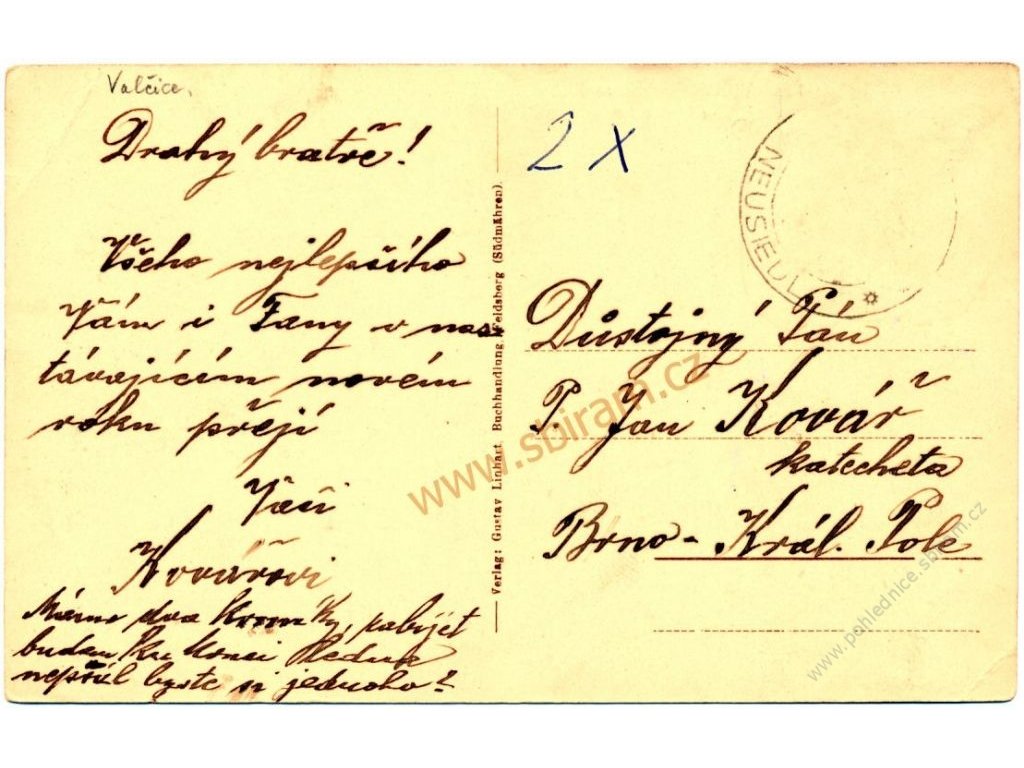 Valčice,
Drahý bratře!
Všeho nejlepšího
Vám i Fany v nas-
távajícím novém
roku přejí
Vaši
Kovářovi
Máme dva krmníky, zabíjet
budem ku konci ledna
nepřál byste si jednoho?
Verlag: Gustav Linhart, Buchhandlung Feldsberg (Südmähren).
2 X
NEUSIEDL
Důstojný Pán
P. Jan Kovář
katecheta
Brno - Král. Pole
www.sbiram.cz
www.pohlednice.sbiram.cz